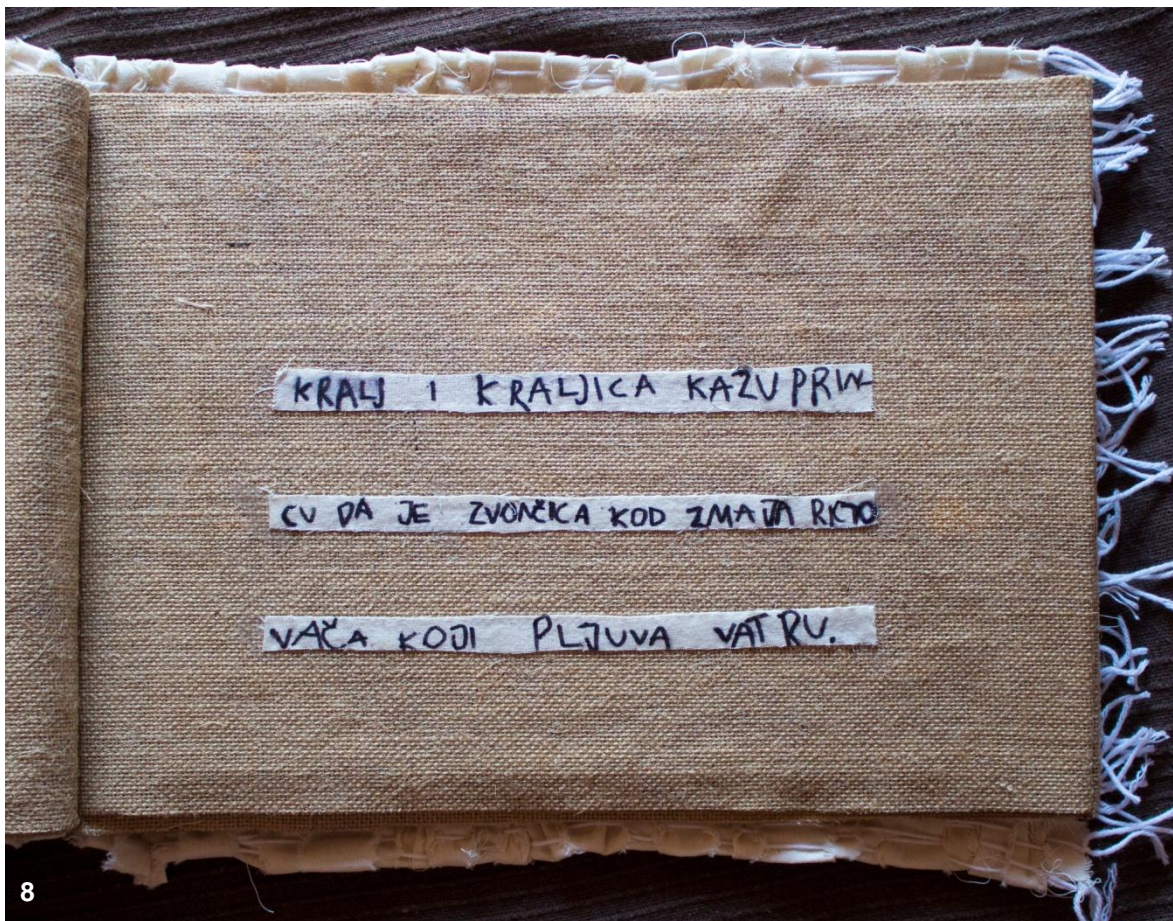 KRALJ I KRALJICA KAŽU PRIN-
CU DA JE ZVONČICA KOD ZMAJA
VAČA KOJI PLJUVA VATRU.
8